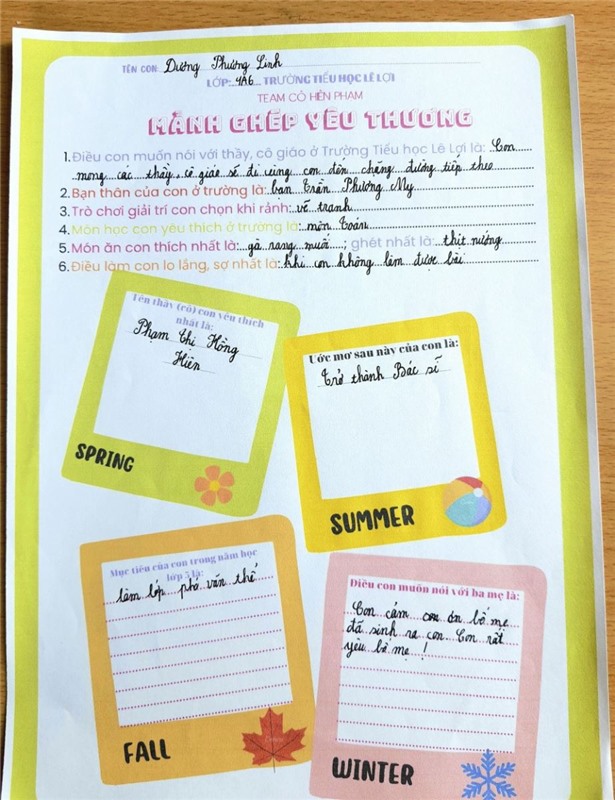 TÊN CON: Dương Phương Linh
LỚP: 4A6 TRƯỜNG TIỂU HỌC LÊ LỢI
TEAM CÔ HIỀN PHẠM
MẢNH GHÉP YÊU THƯƠNG
1. Điều con muốn nói với thầy, cô giáo ở Trường Tiểu học Lê Lợi là: Con
mong các thầy, cô giáo sẽ đi cùng con đến chặng đường tiếp theo
2. Bạn thân của con ở trường là: bạn Trần Phương My
3. Trò chơi giải trí con chọn khi rảnh: vẽ tranh
4. Môn học con yêu thích ở trường là: môn Toán
5. Món ăn con thích nhất là: gà rang muối; ghét nhất là: thịt nướng
6. Điều làm con lo lắng, sợ nhất là: khi con không làm được bài
Tên thầy (cô) con yêu thích
nhất là:
Phạm Thị Hồng
Hiền
SPRING
Ước mơ sau này của con là:
Trở thành Bác sĩ
SUMMER
Mục tiêu của con trong năm học
lớp 5 là:
làm lớp phó văn thể
FALL
Điều con muốn nói với ba mẹ là:
Con cảm con ơn bố mẹ
đã sinh ra con. Con rất
yêu bố mẹ !
WINTER